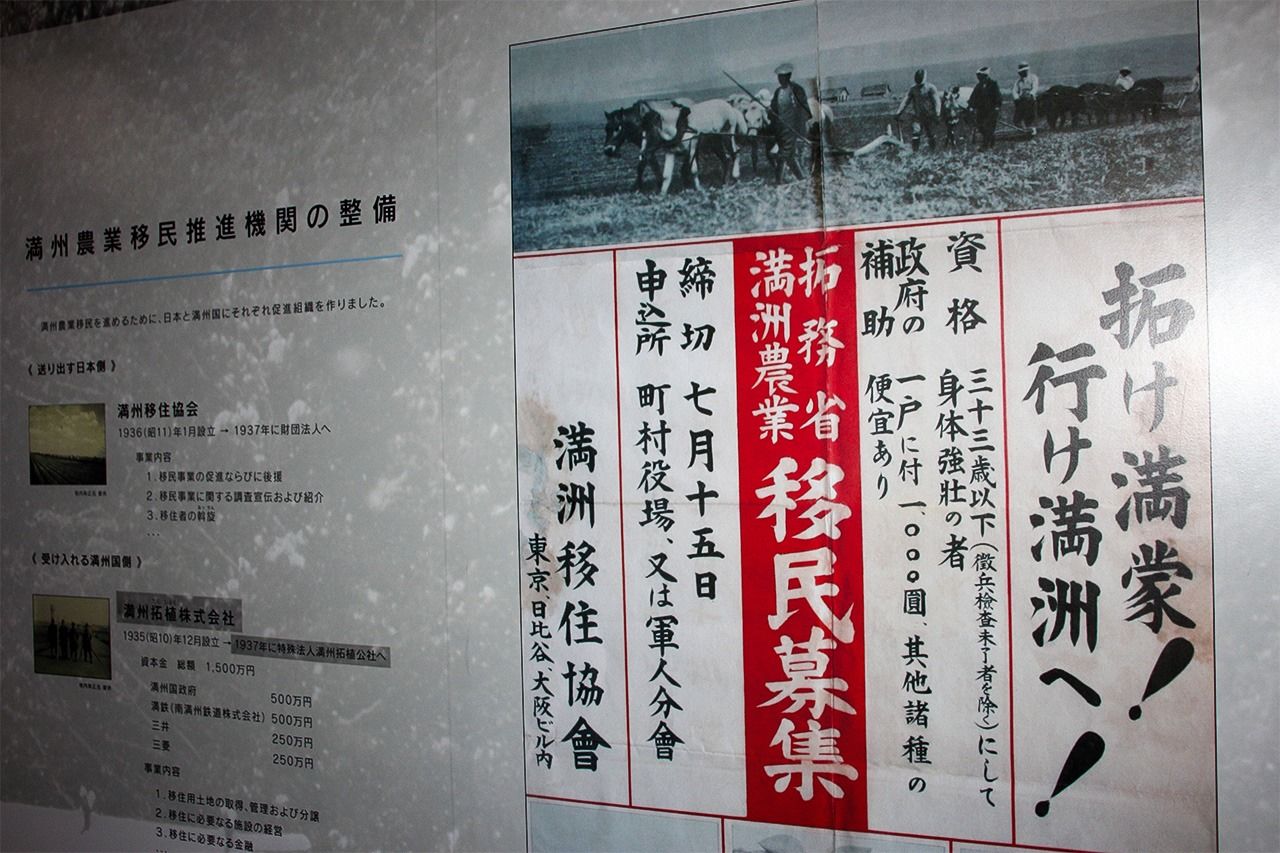 満州農業移民推進機関の整備
満州農業移民を進めるために、日本と満州国にそれぞれ促進組織を作りました。
《 送り出す日本側 》
満州移住協会
1936(昭11)年1月設立 → 1937年に財団法人へ
事業内容
1. 移民事業の促進ならびに後援
2. 移民事業に関する調査宣伝および紹介
3. 移住者の斡旋
…
《 受け入れる満州国側 》
満州拓植株式会社
1935(昭10)年12月設立 → 1937年に特殊法人満州拓植公社へ
資本金 総額 1,500万円
満州国政府 500万円
満鉄(南満州鉄道株式会社) 500万円
三井 250万円
三菱 250万円
事業内容
1. 移住用土地の取得、管理および分譲
2. 移住に必要なる施設の経営
3. 移住に必要なる金融
拓け満蒙!
行け満洲へ!
資格 三十三歳以下(徴兵檢査未了者を除く)にして
身体強壮の者
政府の補助 一戸に付 一、〇〇〇圓、其他諸種の
便宜あり
拓務省
満洲農業
移民募集
締切 七月十五日
申込所 町村役場、又は軍人分會
満洲移住協會
東京、日比谷、大阪ビル内